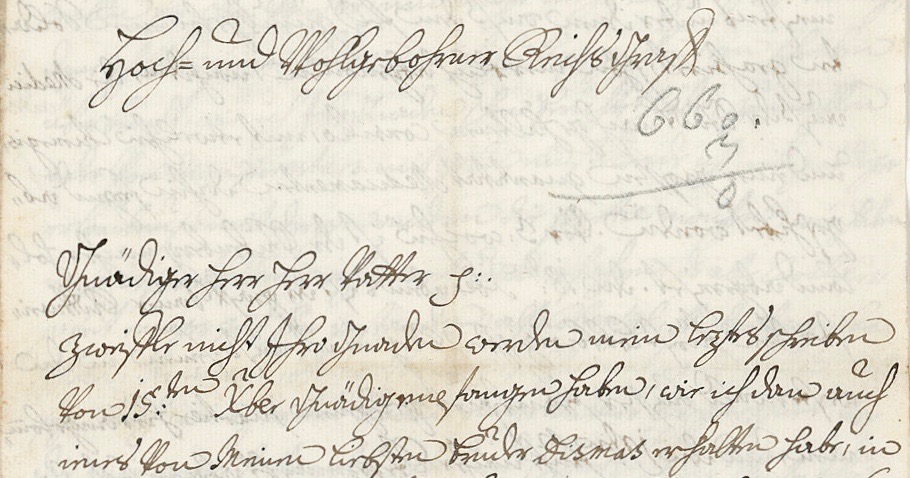 Hoch= und Wohlgebohrner Reichs Graff
6. 6 0.
3
0
Gnädiger Herr Herr Vatter p::
zweiffle nicht Ihro Gnaden werden mein leztes schreiben
Von 15:ten Xber Gnädig empfangen haben, wie ich dan auch
jenes Von Meinen liebsten bruder Dismas erhalten habe, in